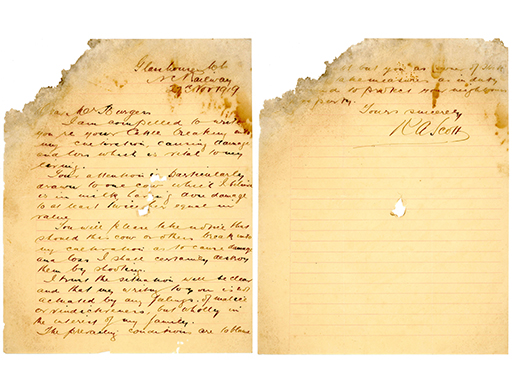 N C Railway
Nov 1919
Mr Burgess
I am compelled to write
you re your cattle breaking into
my cultivation, causing damage
and loss which is vital to my
living.
Your attention is particularly
drawn to one cow which I believe
is in milk having done damage
to at least twice her equal in
value
You will please take notice that
should this cow or others break into
my cultivation as to cause damage
and loss I shall certainly destroy
them by shooting.
I trust the situation will be clear
and that my writing to you is not
actuated by any feelings of malice
or vindictiveness, but wholly in
the interest of my family.
The prevailing conditions are to blame
but you as
to protect
property.
Yours sincerely
Scott